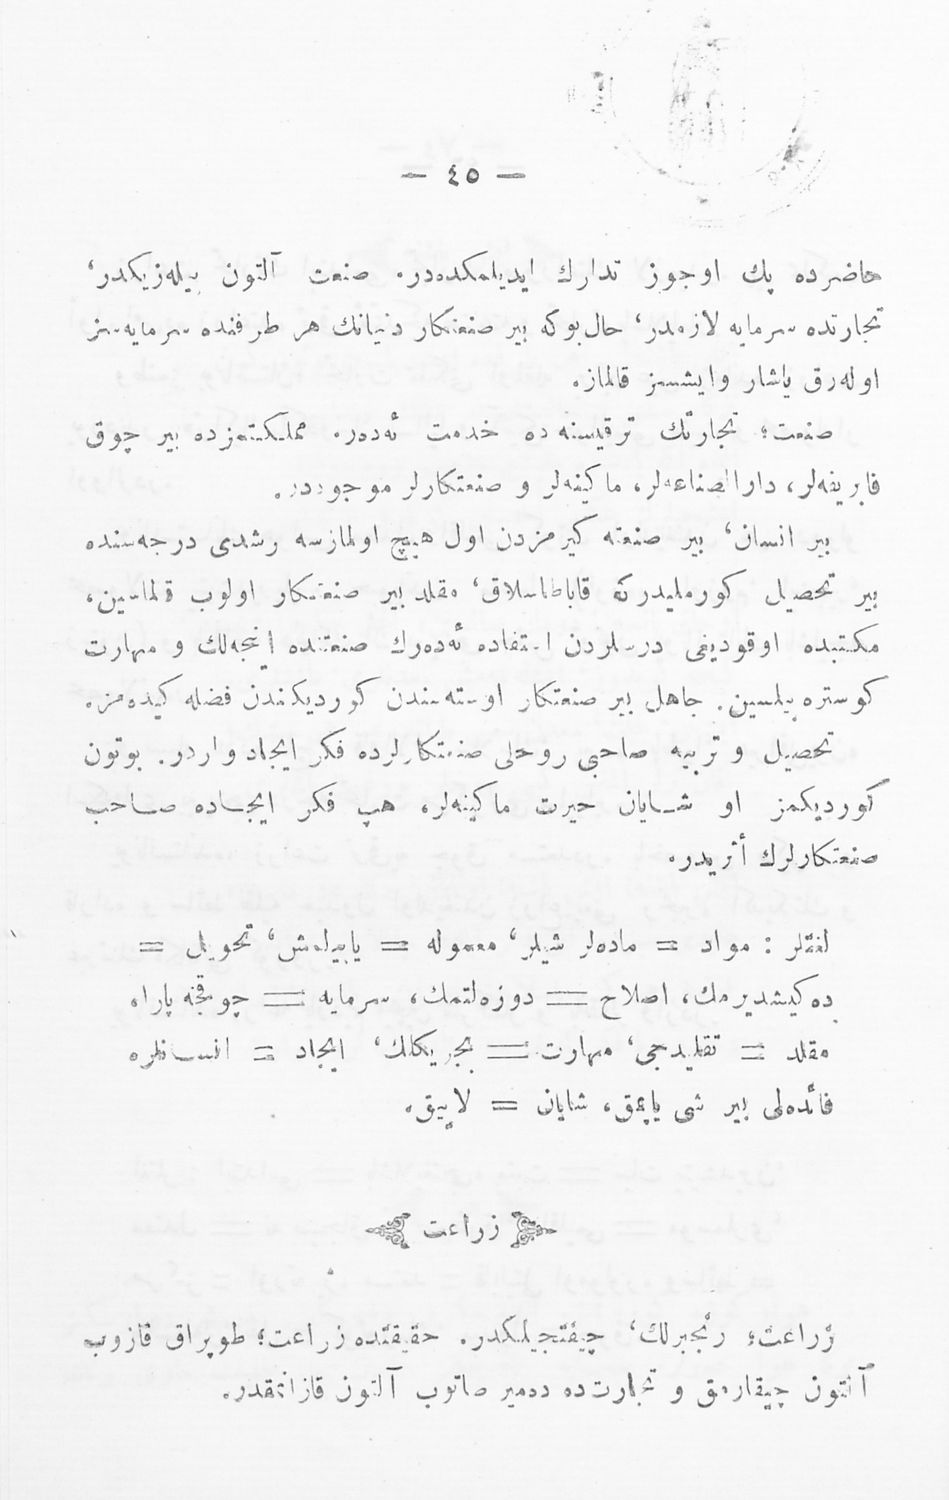 — ٤٥ —
حاضرده پك اوجوز تدارك ايديلمكده‌در. صنعت آلتون بيله‌زيكدر،
تجارتده سرمايه لازمدر، حال بوكه بير صنعتكار دنيانك هر طرفنده سرمايه‌سز
اوله‌رق ياشار وايشسز قالماز.
صنعت؛ تجارتك ترقيسنه ده خدمت ئه‌ده‌ر. مملكتمزده بير چوق
فابريقه‌لر، دارالصناعه‌لر، ماكينه‌لر و صنعتكارلر موجوددر.
بير انسان، بير صنعته كيرمزدن اول هيچ اولمازسه رشدى درجه‌سنده
بير تحصيل كورمليدركه قاباطاسلاق، مقلد بير صنعتكار اولوب قالماسين،
مكتبده اوقوديغى درسلردن استفاده ئه‌ده‌رك صنعتنده اينجه‌لك و مهارت
كوستره بيلسين. جاهل بير صنعتكار اوسته‌سندن كورديكندن فضله كيده‌مز.
تحصيل و تربيه صاحبى روحلى صنعتكارلرده فكر ايجاد واردر. بوتون
كورديكمز او شايان حيرت ماكينه‌لر، هپ فكر ايجاده صاحب
صنعتكارلرك أثريدر.
لغتلر : مواد = ماده‌لر شيلر، معموله = ياپيلمش، تحويل =
ده‌كيشديرمك، اصلاح = دوزه‌لتمك، سرمايه = چوقجه پارا،
مقلد = تقليدجى، مهارت = بجريكلك، ايجاد = انسانلره
فائده‌لى بير شى ياپمق، شايان = لاييق.
زراعت
زراعت؛ رنجبرلك، چيفتجيلكدر. حقيقتده زراعت؛ طوپراق قازوب
آلتون چيقارمق و تجارت‌ده ده‌مير صاتوب آلتون قازانمقدر.